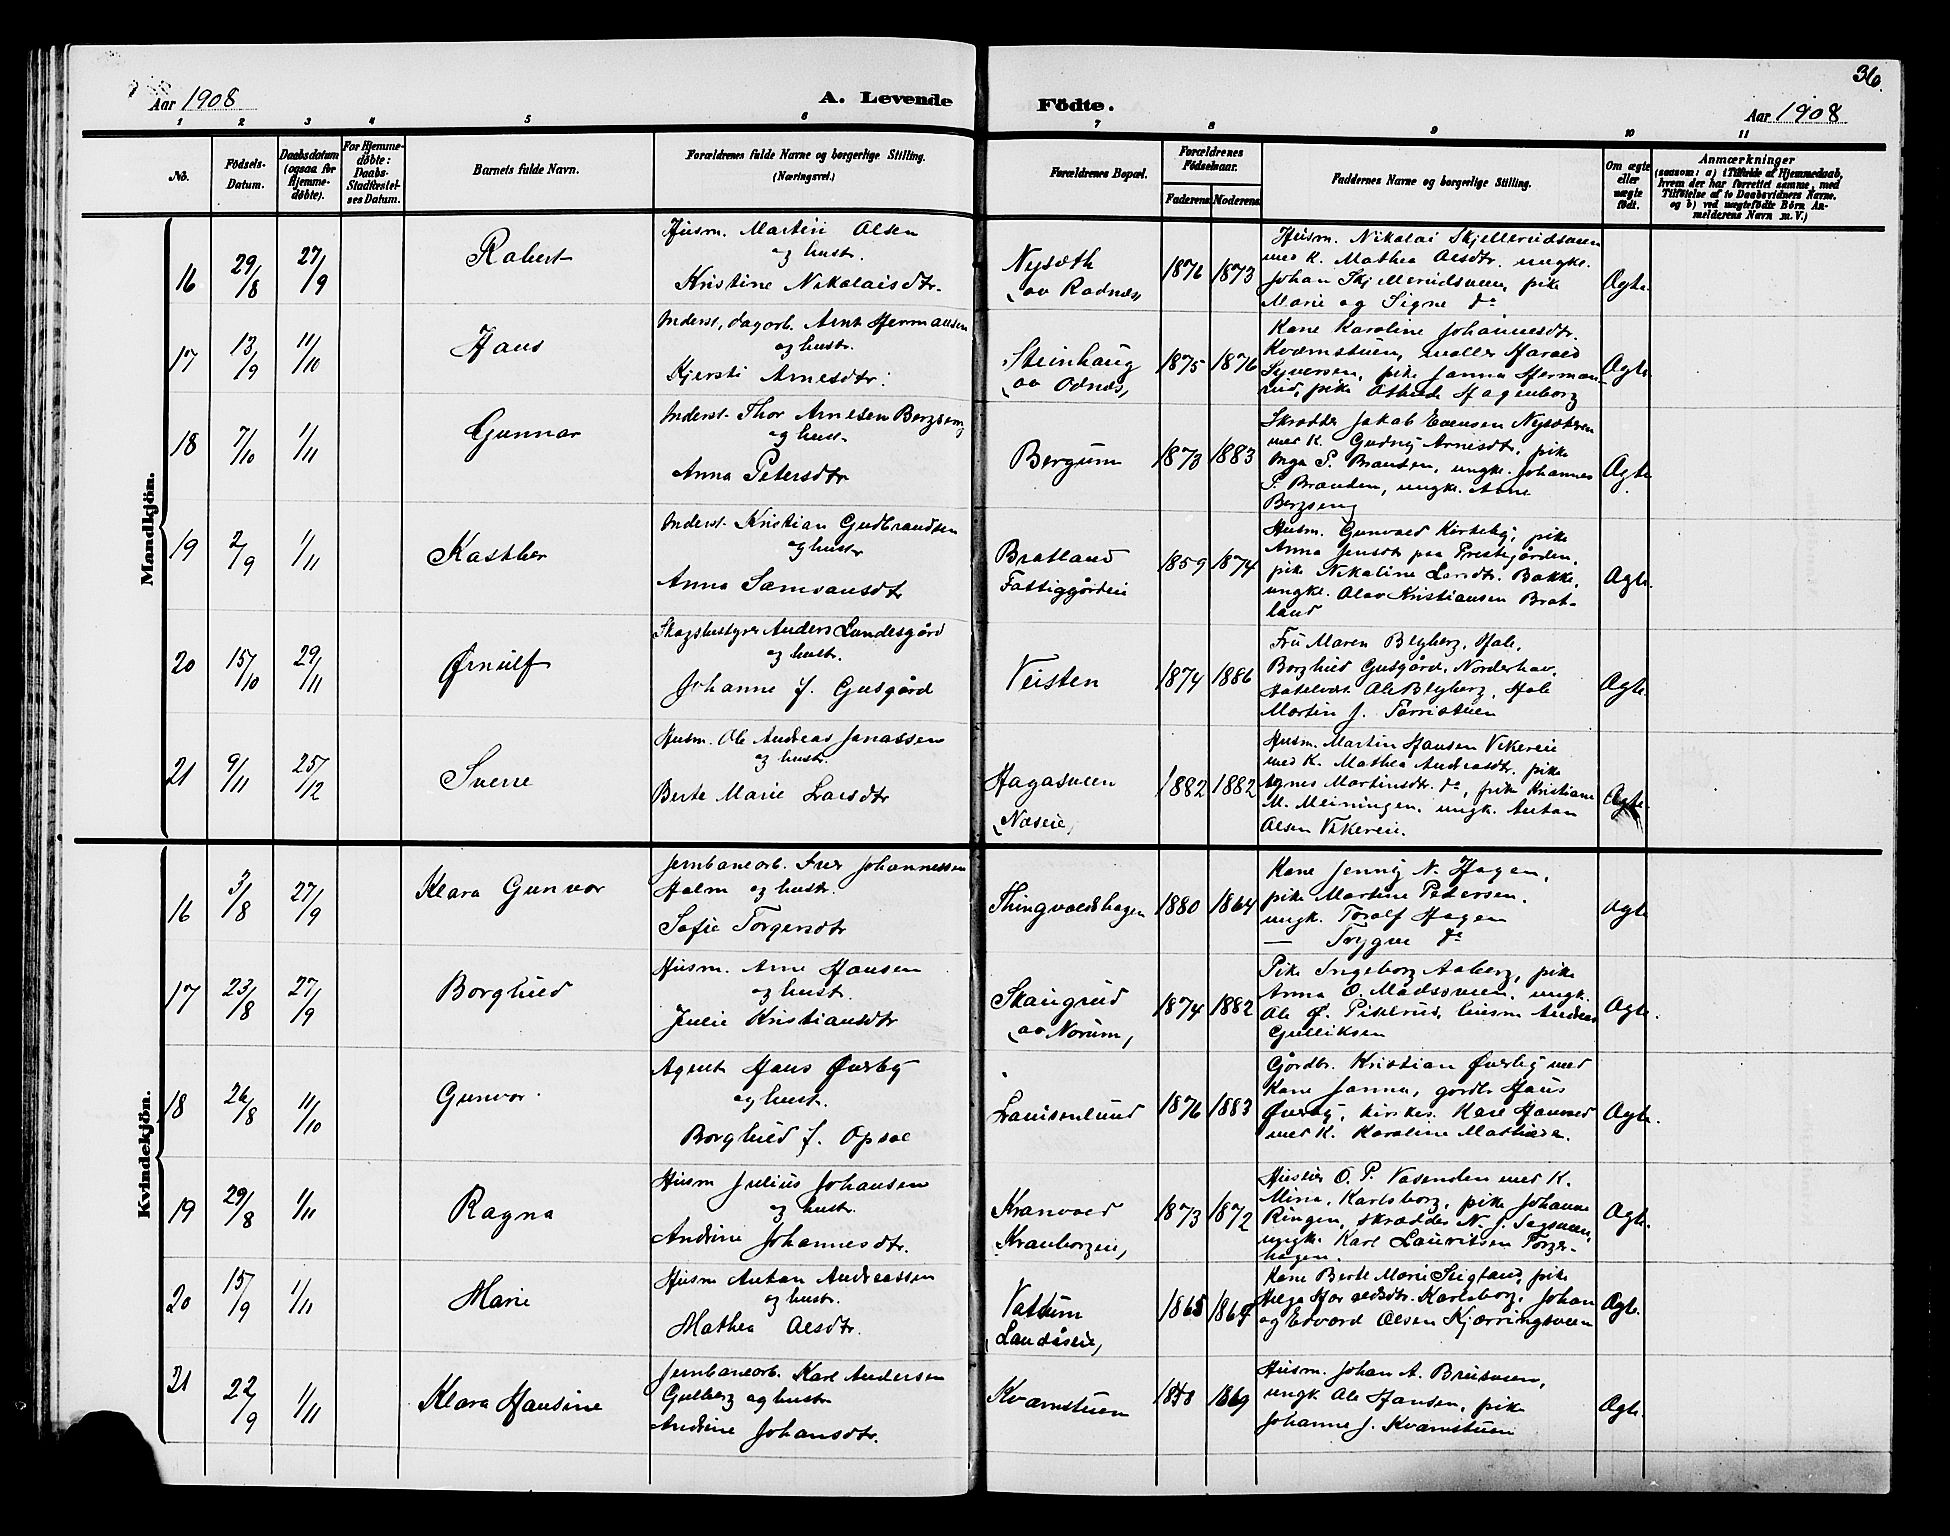 36.
Aar 1908
A. Levende Födte.
Aar 1908
1 2 3 4 5 6 7 8 9 10 11
No.
Födsels-
Datum.
Daabsdatum
(ogsaa for
Hjemme-
döbte).
For Hjemme-
döbte:
Daabs-
Stadfæstel-
ses Datum.
Barnets fulde Navn.
Forældrenes fulde Navne og borgerlige Stilling.
(Næringsvei.)
Forældrenes Bopæl.
Forældrenes
Födselsaar.
Faderens Moderens
Faddernes Navne og borgerlige Stilling.
Om ægte
eller
uægte
födt.
Anmærkninger
(saasom: a) i Tilfælde af Hjemmedaab,
hvem der har forrettet samme, med
Tilföielse af to Daabsvidners Navne,
og b) ved uægtefödte Börn An-
melderens Navn m. V.)
Mandkjön.
16 29/8 27/9 Robert
Husm. Martin Olsen
og hustr.
Kristine Nikolaisdtr.
Nysæth
(av Rodnæs)
1876 1873
Husm. Nikolai Skjellerudsveen
med K. Mathea Olsdtr. ungk.
Johan Skjellerudsveen, pike
Marie og Signe do
Ægte.
17 13/9 11/10 Hans
Inderst, dagarb. Arnt Hermansen
og hustr.
Kjersti Arnesdtr.
Steinhaug
av Odnæs,
1875 1876
Kone Karoline Johannesdtr.
Kværnstuen, møller Harald
Syversen, pike Janna Herman-
rud, pike Hagenborg
Ægte
18 7/10 1/11 Gunnar
Inderst. Thor Arnesen Bergseng
og hustr
Anna Petersdtr
Bergum
1873 1883
Skrædder Jakob Evensen Nysæteren
med K. Gudny Arnesdt, pike
Inga P. Brænden, ungk. Johannes
P. Brænden, ungk. Arne
Bergseng
Ægte
19 2/9 1/11 Kastber
Inderst. Kristian Gudbrandsen
og hustr
Anna Samvansdtr
Bratland
Fattiggården
1859 1874
Husm. Gunvald Kirkeby, pike
Anna Jensdt paa Prestegården,
pike Nikoline Larsdtr. Bakke,
ungk. Olav Kristiansen Brat-
land
Ægte.
20 15/10 29/11 Ørnulf
Skogsbestyrer Anders Lundesgård
og hustr.
Johanne f. Gusgård
Veisten
1874 1886
Fru Maren Blyberg, Hole,
Borghild Gusgård, Norderhov,
Ole Blyberg, Hole
Martin J. Tørristuen
Ægte.
21 9/11 25/12 Sverre
Husm. Ole Andreas Jonassen
og hustr.
Berte Marie Larsdtr
Hagasveen
(Næseie)
1882 1882
Husm. Martin Hansen Vikereie
med K. Mathea Andreasdtr. pike
Agnes Martinsdtr. do, pike Kristiane
M. Meiningen, ungk. Anton
Olsen Vikereie.
Ægte.
Kvindekjön.
16 3/8 27/9 Klara Gunvor
Jernbanearb. Iver Johannessen
Holm og hustr.
Sofie Torgersdtr
Thingvoldshagen
1880 1864
Kone Jenny N. Hagen,
pike Martine Petersen,
ungk. Toralf Hagen
— Trygve do
Ægte
17 23/8 27/9 Borghild
Husm. Arne Hansen
og hustr.
Julie Kristiansdtr
Skaugrud
(av Norum,)
1874 1882
Pike Ingeborg Aaberg, pike
Anna O. Madssveen, ungk.
Ole Ø. Piselrud, husm Andreas
Gulliksen
Ægte.
18 26/8 11/10 Gunvor.
Agent Hans Øverby
og hustr.
Borghild f. Opsal
Louisenlund
1876 1883
Gårdbr. Kristian Øverby med
Kone Janna, gårdbr Hans
Øverby, kirkes. Kåre Hamvold
med K. Karoline Mathisen.
Ægte.
19 29/8 1/11 Ragna
Husm Julius Johansen
og hustr.
Andrine Johannesdtr.
Kranvold
Kranborgeie,
1873 1872
Huseier O. P. Vasenden med K.
Mina, Karlsborg, pike Johanne
Ringen, skrædder N. J. Sagsveen,
ungk. Karl Lauritsen Torger-
hagen.
Ægte.
20 15/9 1/11 Marie
Husm Anton Andreassen
og hustr.
Mathea Olsdtr.
Vatdum
(Landåseie,)
1865 1867
Kone Berte Marie Sigtand, pike
Helga Haraldsdtr. Karlsborg, Johan
og Edvard Olsen Kjærringsveen
Ægte.
21 22/9 1/11 Klara Hansine
Jernbanearb. Karl Andersen
Gulberg og hustr
Andrine Johansdtr.
Kværnstuen
1858 1869
Husm. Johan A. Bruisveen,
ungk Ole Hansen, pike
Johanne J. Kværnstuen
Ægte.